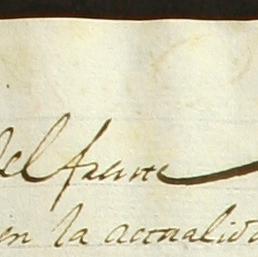 del frente
en la actualida